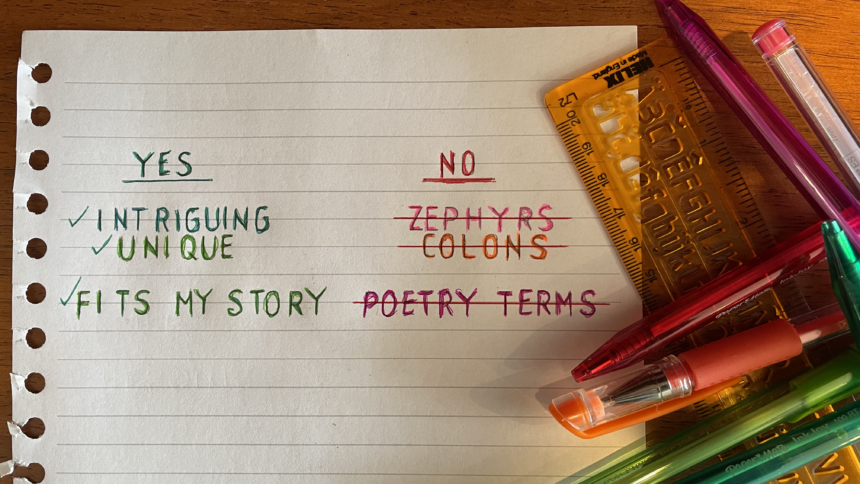 YES NO
INTRIGUING ZEPHYRS
UNIQUE COLONS
FITS MY STORY POETRY TERMS
HELIX
Made in England
L72
20
19
18
17
16
15